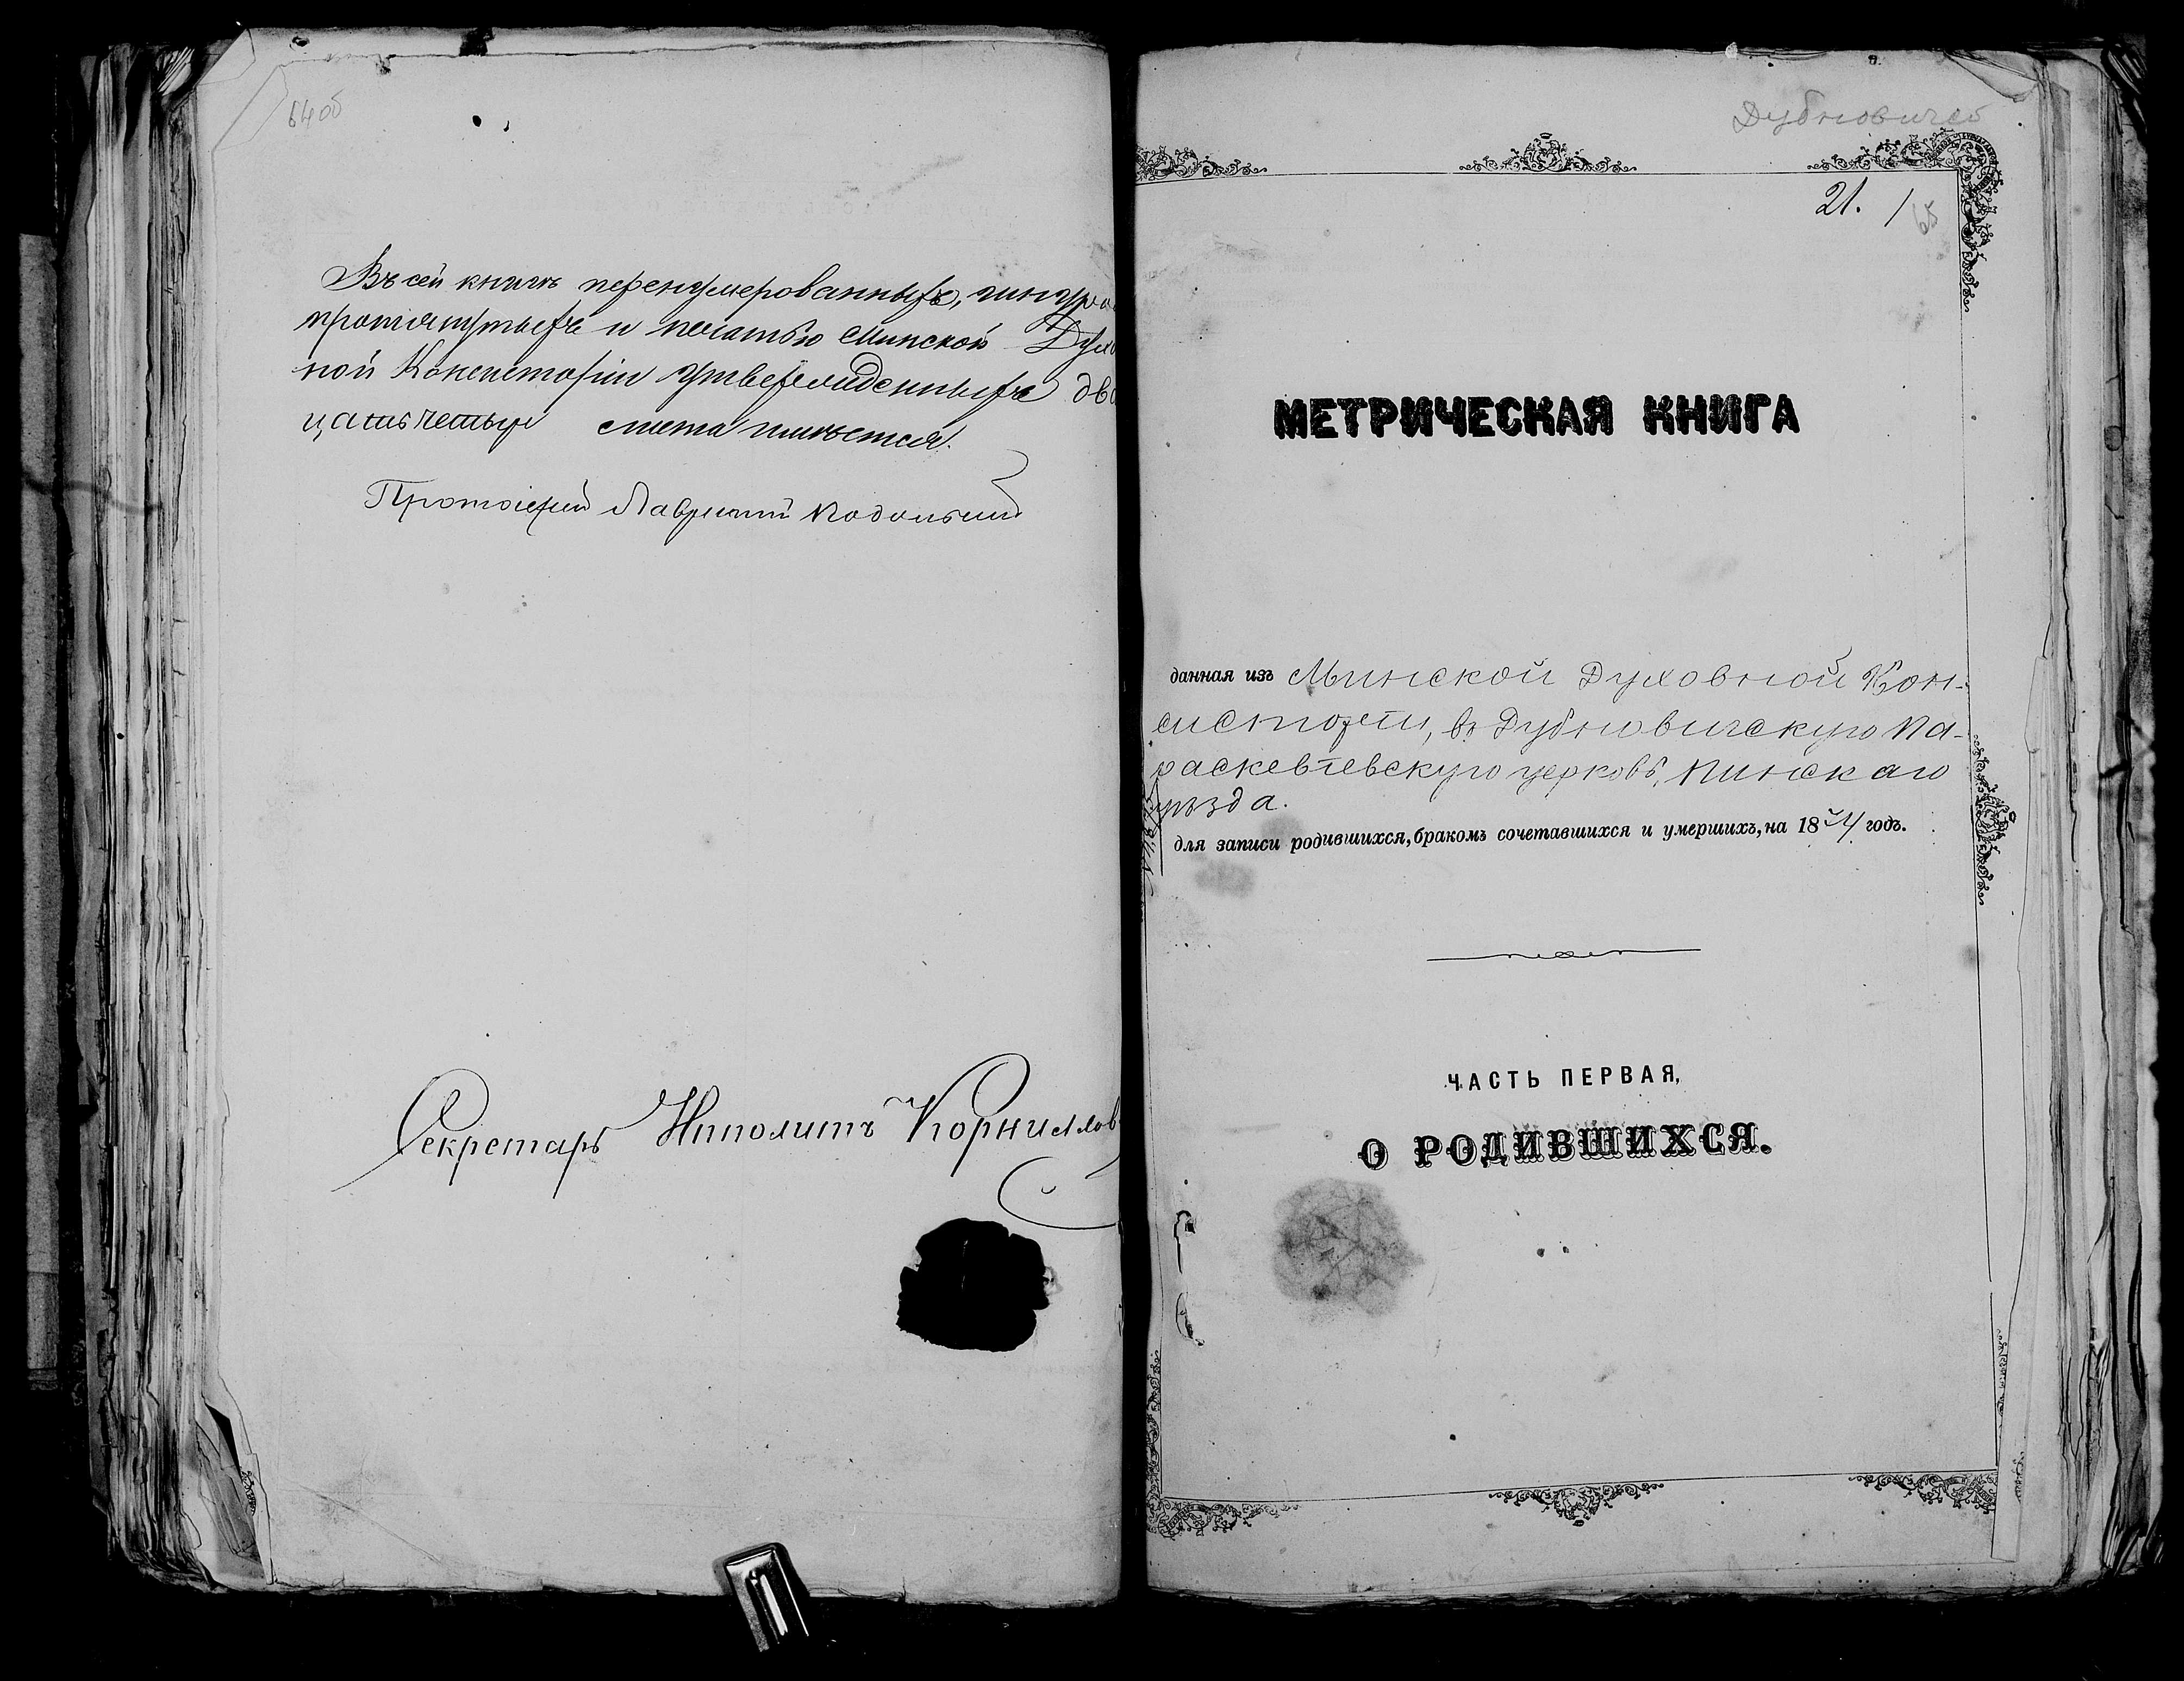 64об
Въ сей книгѣ перенумерованныхъ, шнуро
протянутыхъ и печатью Минской Духо
ной Консисторіи утвержденныхъ два
цать четыре листа имѣется.
Протоіерей Лаврентій Подольскій
Секретарь Ипполитъ Корниллов
Дубновичей
21. 1 65
МЕТРИЧЕСКАЯ КНИГА
данная изъ Минской Духовной Кон-
систоріи, въ Дубновичскую Па-
раскевіевскую церковь, Пинскаго
уѣзда.
для записи родившихся, бракомъ сочетавшихся и умершихъ, на 18 годъ.
ЧАСТЬ ПЕРВАЯ,
О РОДИВШИХСЯ.